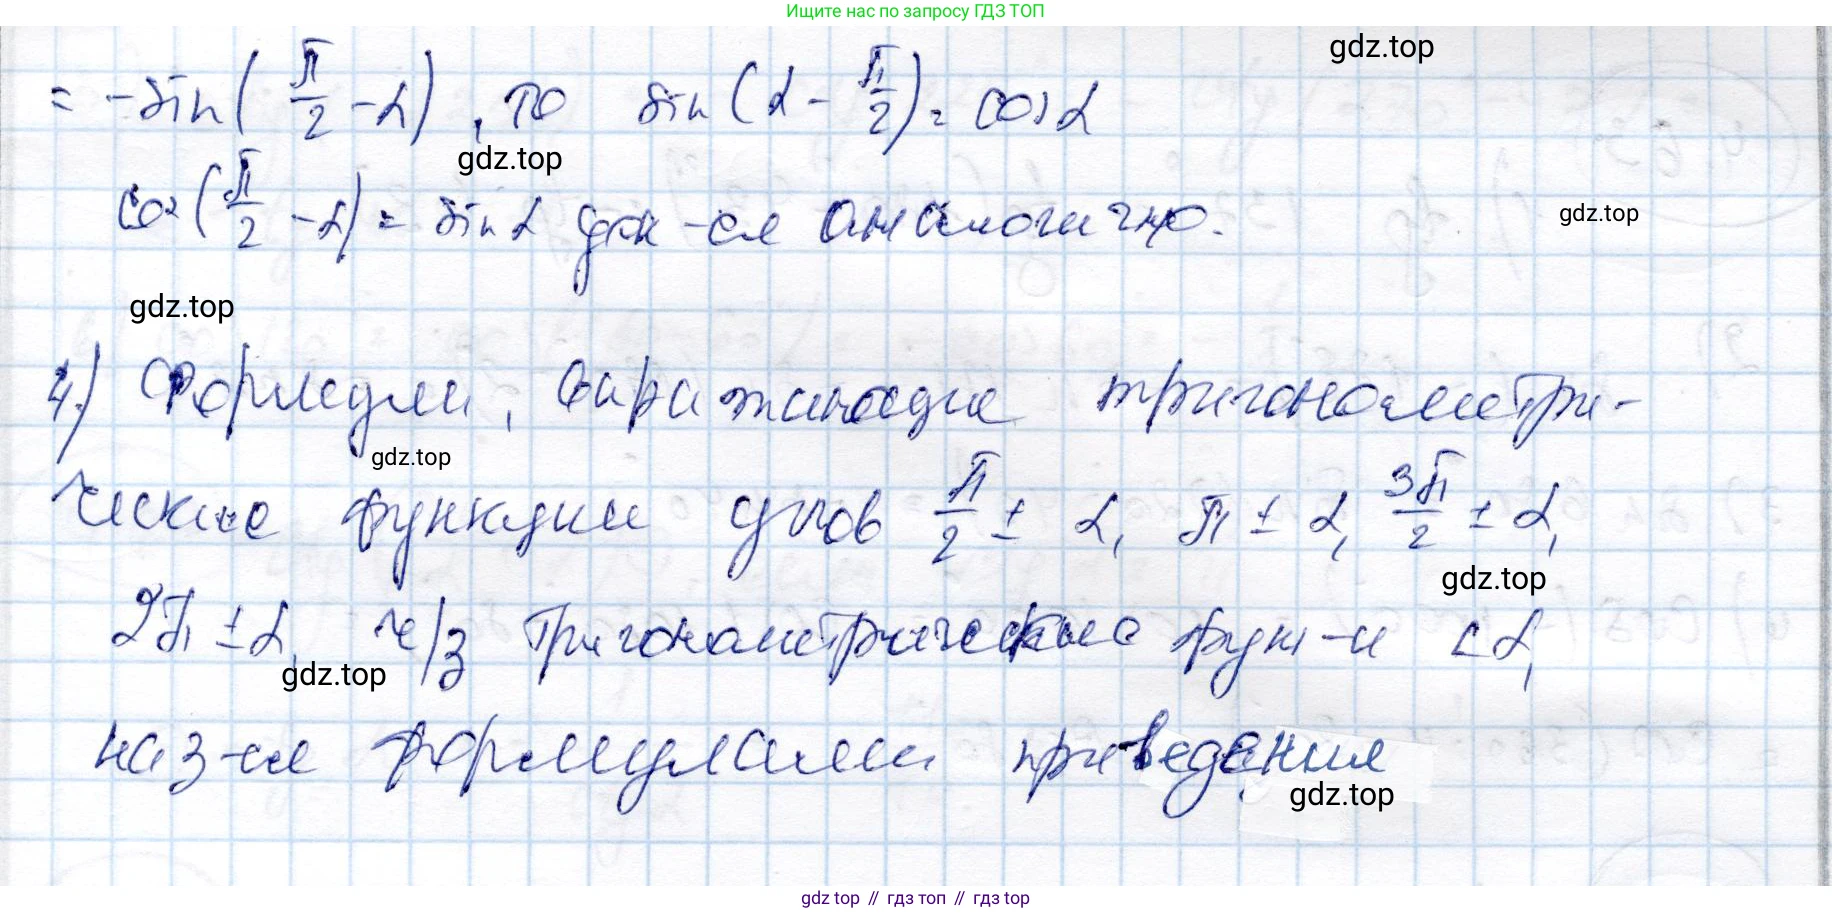 Ищите нас по запросу ГДЗ ТОП
gdz.top
= -sin(π/2 - α), то sin(α - π/2) = cos α
gdz.top
cos(π/2 - α) = sin α док-ся аналогично.
gdz.top
gdz.top
4) Формулы, выражающие тригонометри-
gdz.top
ческие функции углов π/2 ± α, π ± α, 3π/2 ± α,
gdz.top
2π ± α, ч/з тригонометрические функ-и ∠α,
gdz.top
наз-ся формулами приведения
gdz.top
gdz top // гдз топ // гдз top